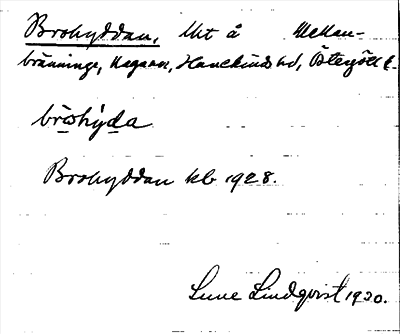 Brohyddan, Ut å Mellan-
bränninge, Hagaen, Hanekinds hd, Östergötl l.
bròshỳda
Brohyddan kb 1928.
Sune Lindqvist 1930.